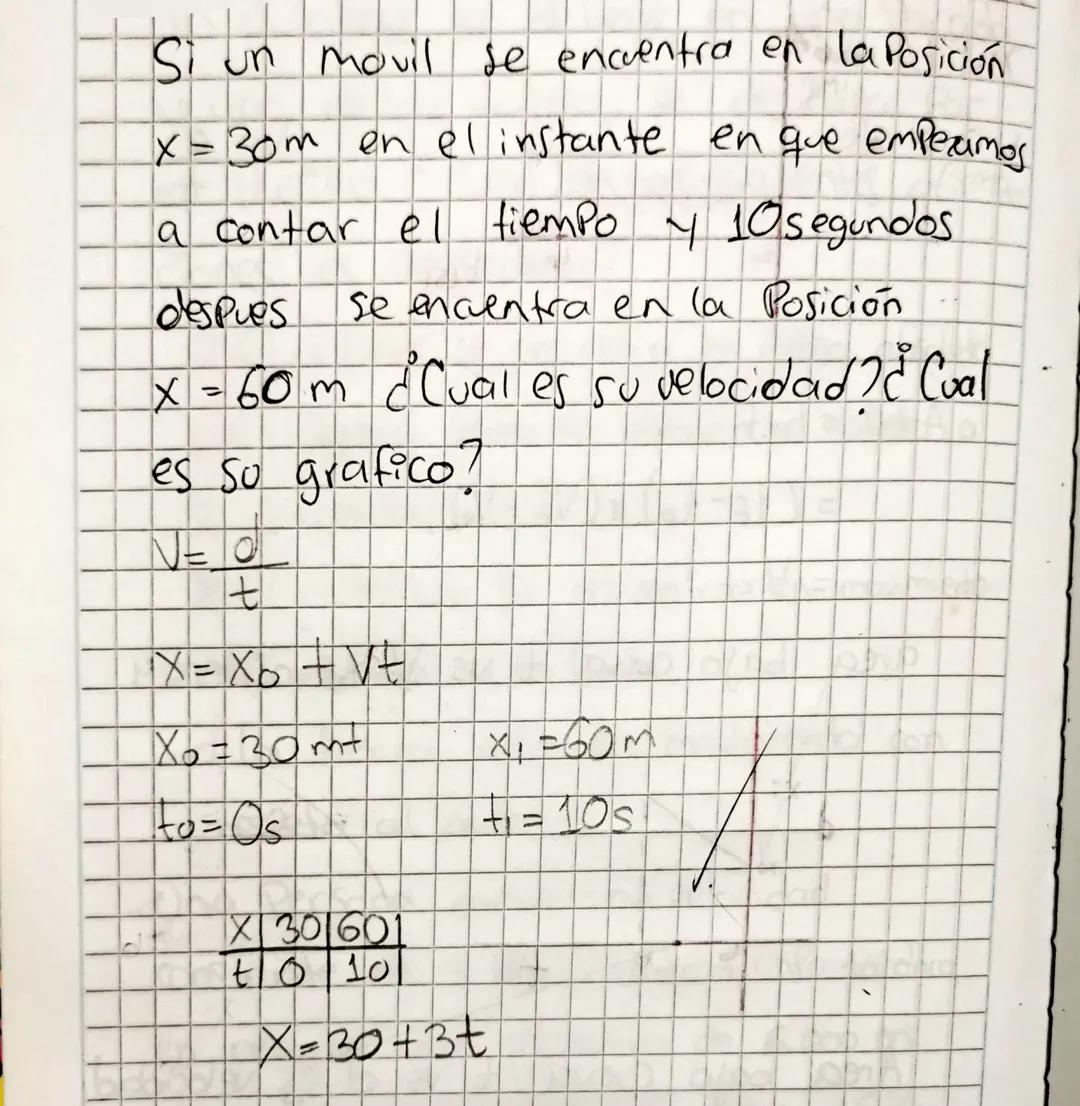 Si un movil se encuentra en la Posición
x = 30m en el instante en que empezamos
a contar el tiempo y 10 segundos
despues se encuentra en la Posición
x = 60 m ¿Cual es su velocidad? ¿Cual
es so grafico?
V = d
t
X = X₀ + Vt
X₀ = 30 mt x₁ = 60 m
t₀ = 0s t₁ = 10s
X 30 60
t 0 10
X = 30 + 3t